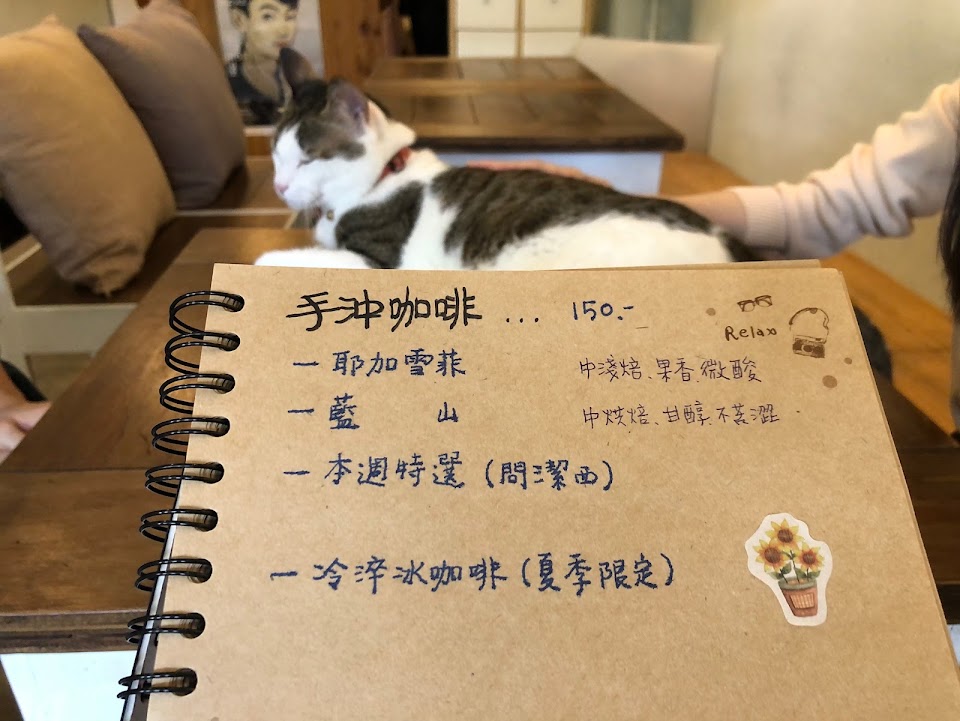 手沖咖啡 ... 150.-
Relax
一 耶加雪菲 中淺焙、果香、微酸
一 藍 山 中烘焙、甘醇、不苦澀.
一 本週特選 (問潔西)
一 冷淬冰咖啡 (夏季限定)